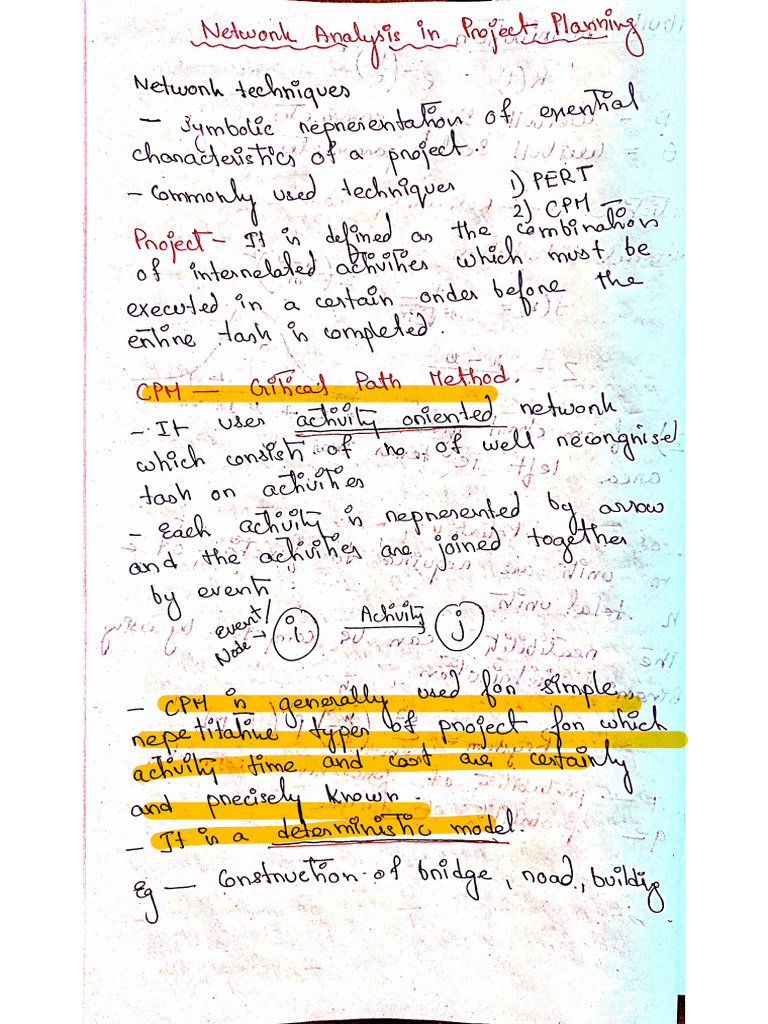 Network Analysis in Project Planning
Network techniques
– Symbolic representation of essential
characteristics of a project.
– Commonly used techniques 1) PERT
2) CPM
Project – It is defined as the combination
of interrelated activities which must be
executed in a certain order before the
entire task is completed.
CPM – Critical Path Method.
– It uses activity oriented network
which consist of no of well recongnised
task or activities
– Each activity is represented by arrow
and the activities are joined together
by event :
Event/
Node → i Activity j
– CPM is generally used for simple,
repetitative types of project for which
activity time and cost are certainly
and precisely known.
– It is a deterministic model.
Eg – Construction of bridge, road, buildig